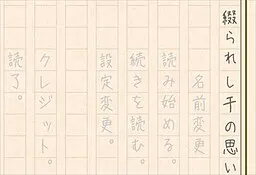 綴られし千の思い
名前変更
読み始める。
続きを読む。
設定変更。
クレジット。
読了。